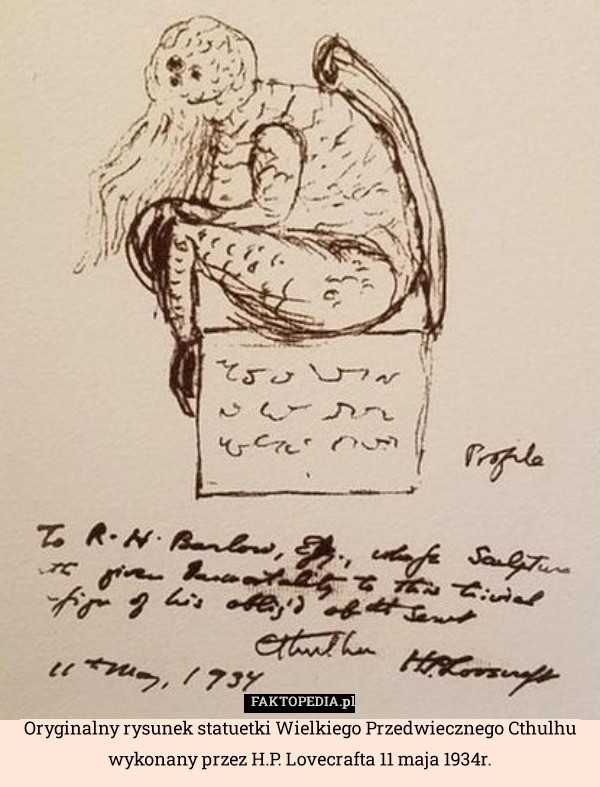 Profile
To R. H. Barlow, Esq., whose Sculpture
hath given Immortality to this trivial
design of his oblig'd obdt Servt
Cthulhu H.P. Lovecraft
11th May, 1934
FAKTOPEDIA.pl
Oryginalny rysunek statuetki Wielkiego Przedwiecznego Cthulhu
wykonany przez H.P. Lovecrafta 11 maja 1934r.